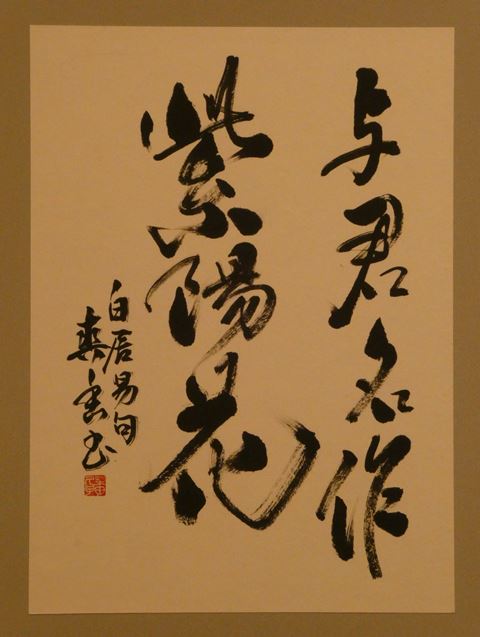 与君名作
紫陽花
白居易句
書